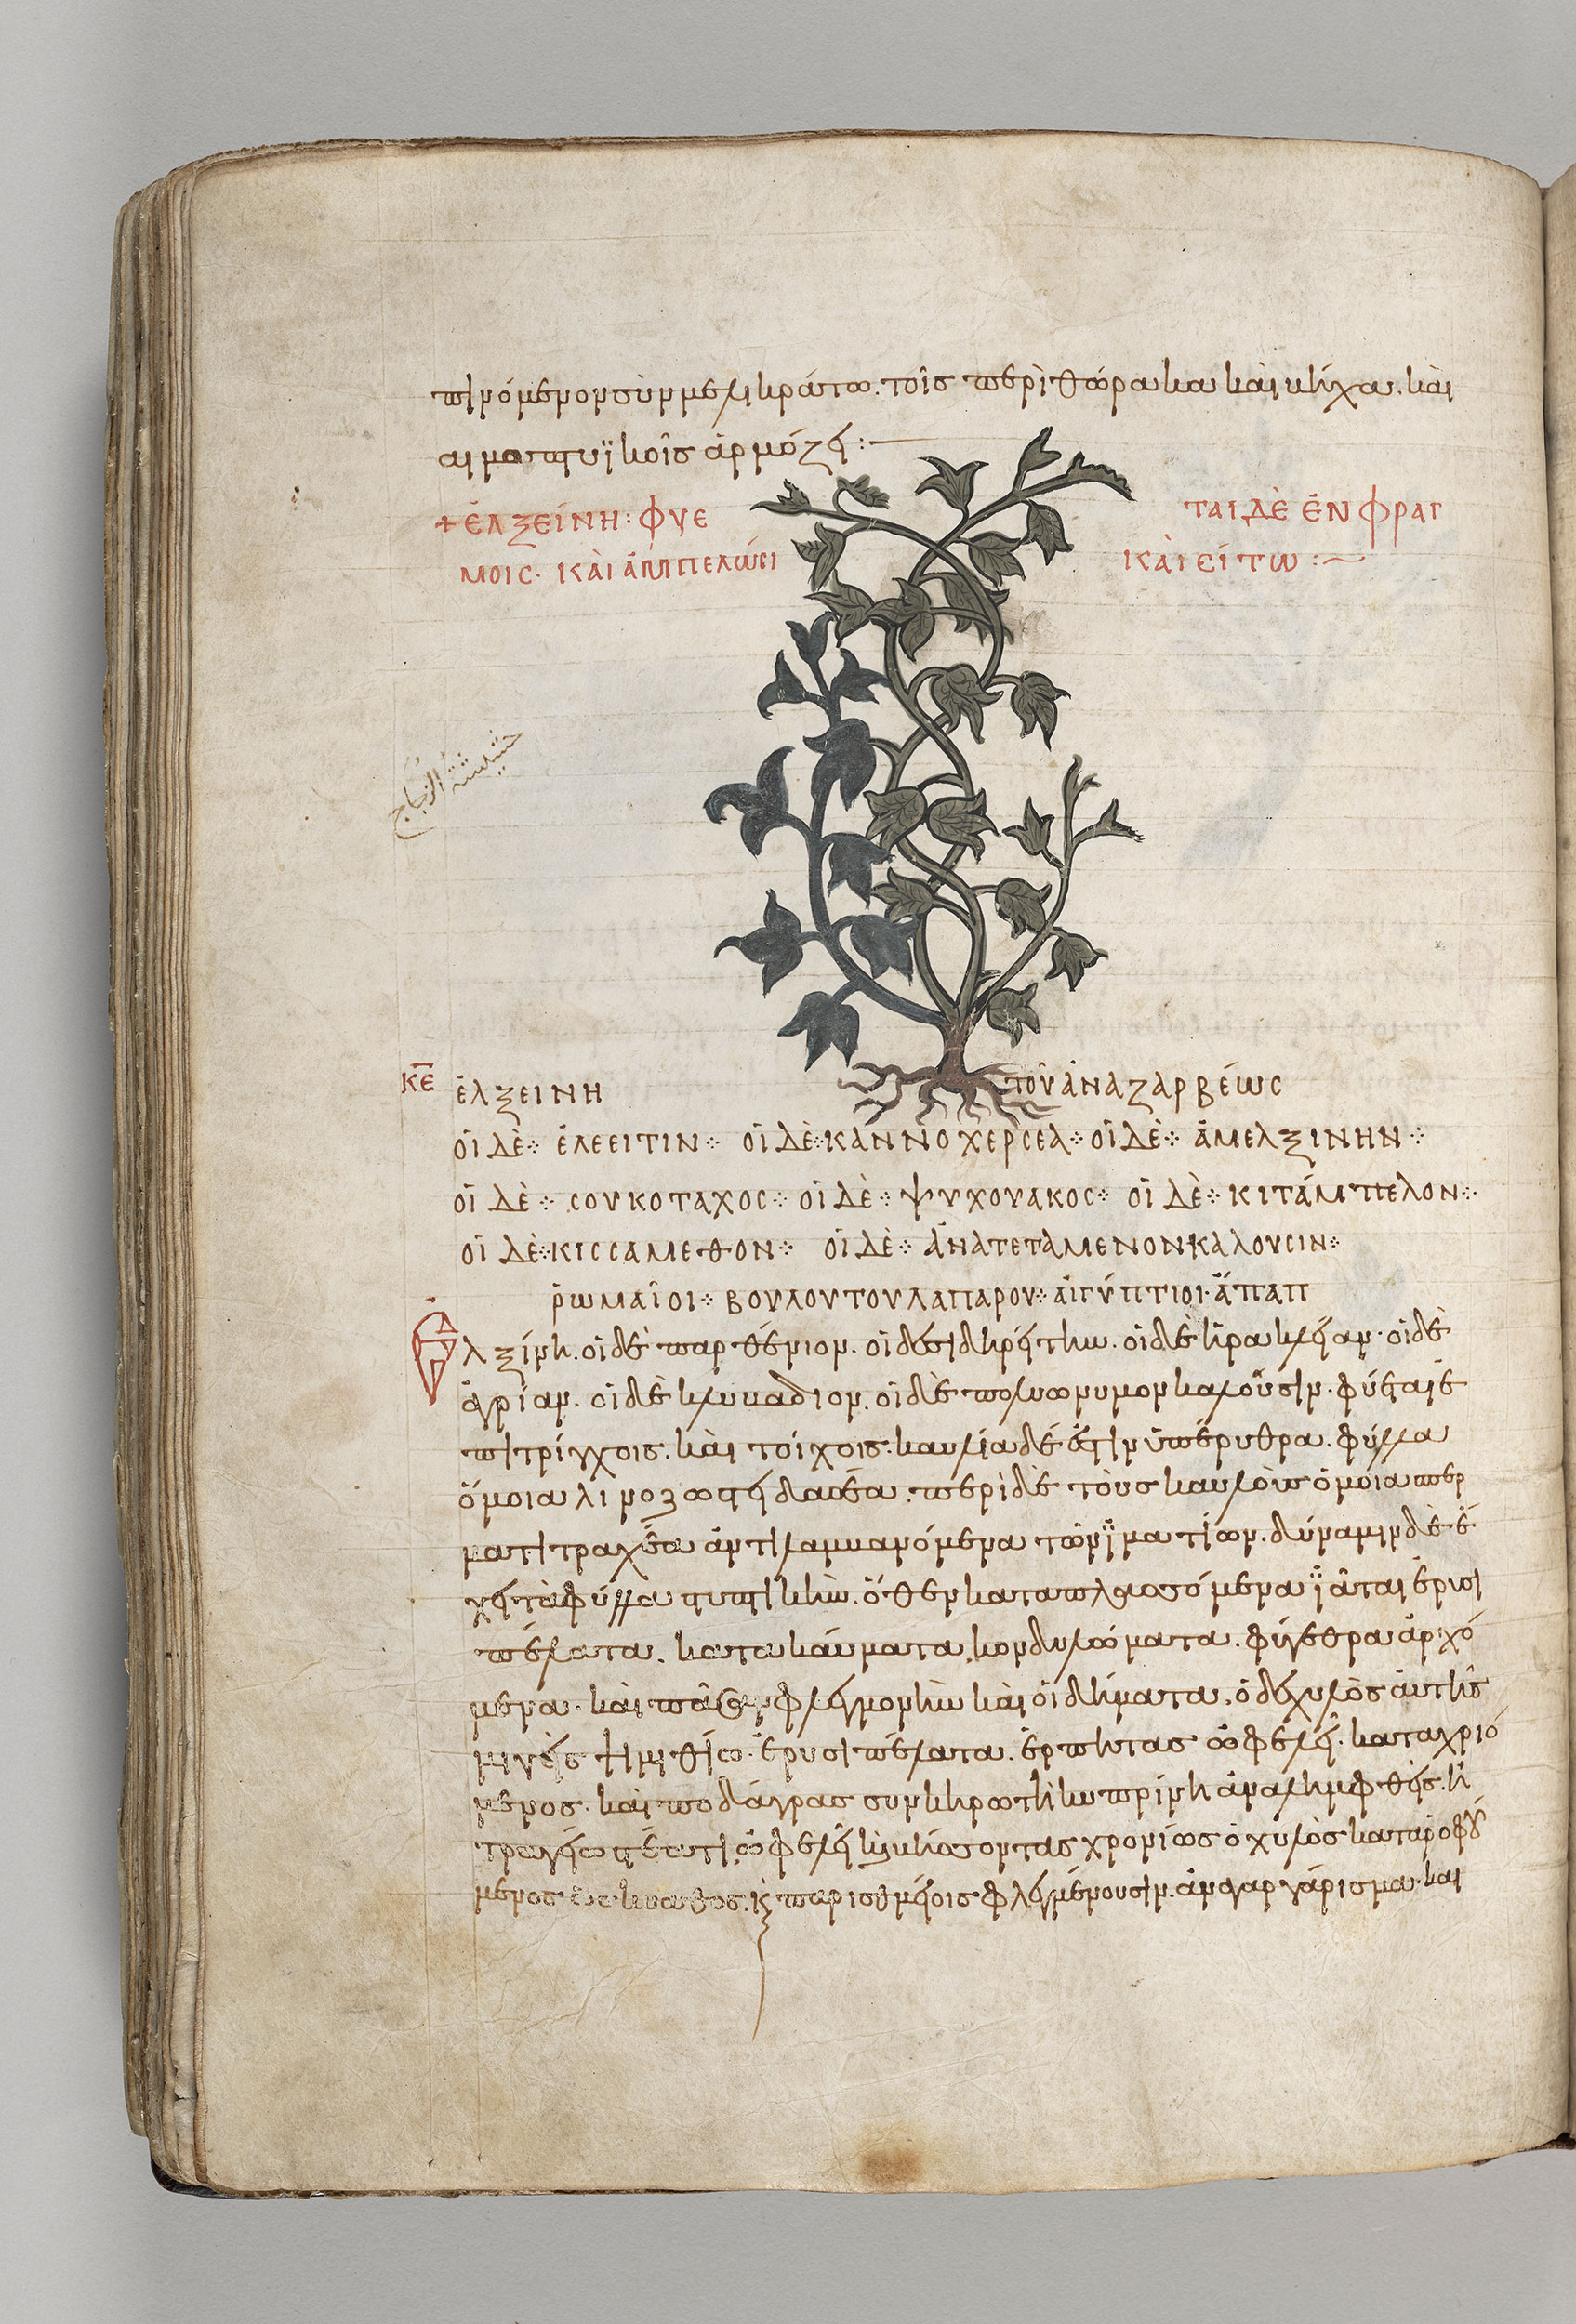 πινόμενον σὺν μελικράτω. τοῖς περὶ θώρακα καὶ κίχα. καὶ
αιμοπτυϊκοῖς ἁρμόζει:
+ ἑλξείνη: φύε ται δὲ ἐν φραγ
μοις. κὰι ἀμπελῶσι κὰι είτω:
حشيشة الزجاج
κε ἑλξεινη τοῦ ἀναζαρβέως
οἱ δὲ ἐλεειτιν οἱ δὲ καννοχερσεα οἱ δὲ ἀμελξινην
οἱ δὲ σουκοταχος οἱ δὲ ψυχουακος οἱ δὲ κιτάμπελον
οἱ δὲ κισσαμεθον οἱ δὲ ἀνατεταμενον καλουσιν
ῥωμαῖοι βουλουτουλαπαρου αἰγύπτιοι ἀπαπ
Ἑλξίνη. οἱ δὲ παρθένιον. οἱ δὲ σιδηρήτην. οἱ δὲ ἡρακλείαν. οἱ δὲ
ἀγρίαν. οἱ δὲ λυκάδιον. οἱ δὲ πολυώνυμον καλοῦσιν. φύεται ἐ
πι τρίγχοις. καὶ τοίχοις. καυλία δέ ἐστιν ὑπέρυθρα. φύλλα
ὅμοια λινοζώστει δασέα. περὶ δὲ τοὺς καυλοὺς ὅμοια σπερ
ματι τραχέα ἀντιλαμβανόμενα τῶν ϊματίων. δύναμιν δὲ ἔ
χει τὰ φύλλα στυπτικὴν. ὅθεν καταπλασσόμενα ϊᾶται ἐρυσι
πέλατα. κατακαύματα, κονδυλώματα. φύγεθρα ἀρχό
μενα. καὶ πᾶσαν φλεγμονὴν καὶ οἰδήματα. ὁ δὲ χυλὸς ἀυτῆς
μιγεὶς ψιμιθίω. ἐρυσιπέλατα. ἕρπητας ὠφελεῖ. καταχριό
μενος. καὶ ποδάγρας συν κηρωτῆ κυπρίνη ἀναλημφθείς. ἢ
τραγείω στέατι, ὠφελεῖ καὶ βήσσοντας χρονίως ὁ χυλὸς καταῤῥοφού
μενος ὡς κύαθος. κ παρισθμείοις φλεγμένουσιν. ἀναγαργάρισμα. καὶ